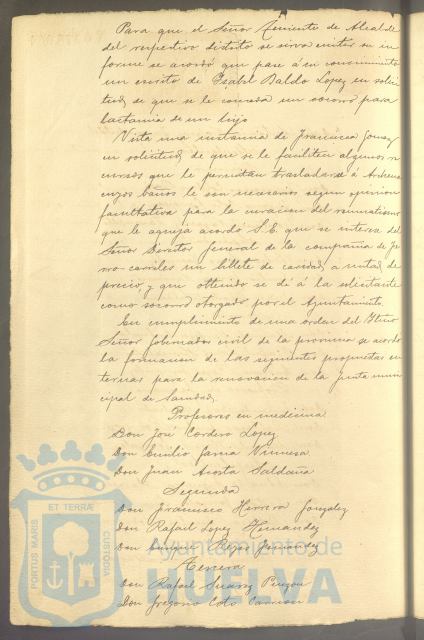 Para que el Señor Teniente de Alcalde
del respectivo distrito se sirva emitir su in
forme se acordó que pase á su conocimiento
un escrito de Isabel Baldo Lopez en solici
tud de que se le conceda un socorro para
lactancia de un hijo
Vista una instancia de Francisca Gomez
en solicitud de que se le faciliten algunos re
cursos que le permitan trasladarse á
cuyos baños le son necesarios segun opinion
facultativa para la curacion del reumatismo
que le aqueja acordó S.E. que se interese del
Señor Director General de la compañia de fe
rro-carriles un billete de caridad, a mitad de
precio, y que obtenido se dé á la solicitante
como socorro otorgado por el Ayuntamiento.
En cumplimiento de una orden del Iltmo
Señor Gobernador civil de la provincia se acordó
la formacion de las siguientes propuestas en
ternas para la renovacion de la Junta muni
cipal de Sanidad,
Profesores en medicina
Don José Cordero Lopez
Don Emilio Garcia
Don Juan Acosta Saldaña
Segunda
Don Francisco Herrera Gonzalez
Don Rafael Lopez Hernandez
Don Enrique Rojas Fernandez
Tercera
Don Rafael Suarez Pinzon
Don Gregorio Coto Carrion
ET TERRÆ
PORTUS MARIS
CUSTODIA
Ayuntamiento de
HUELVA